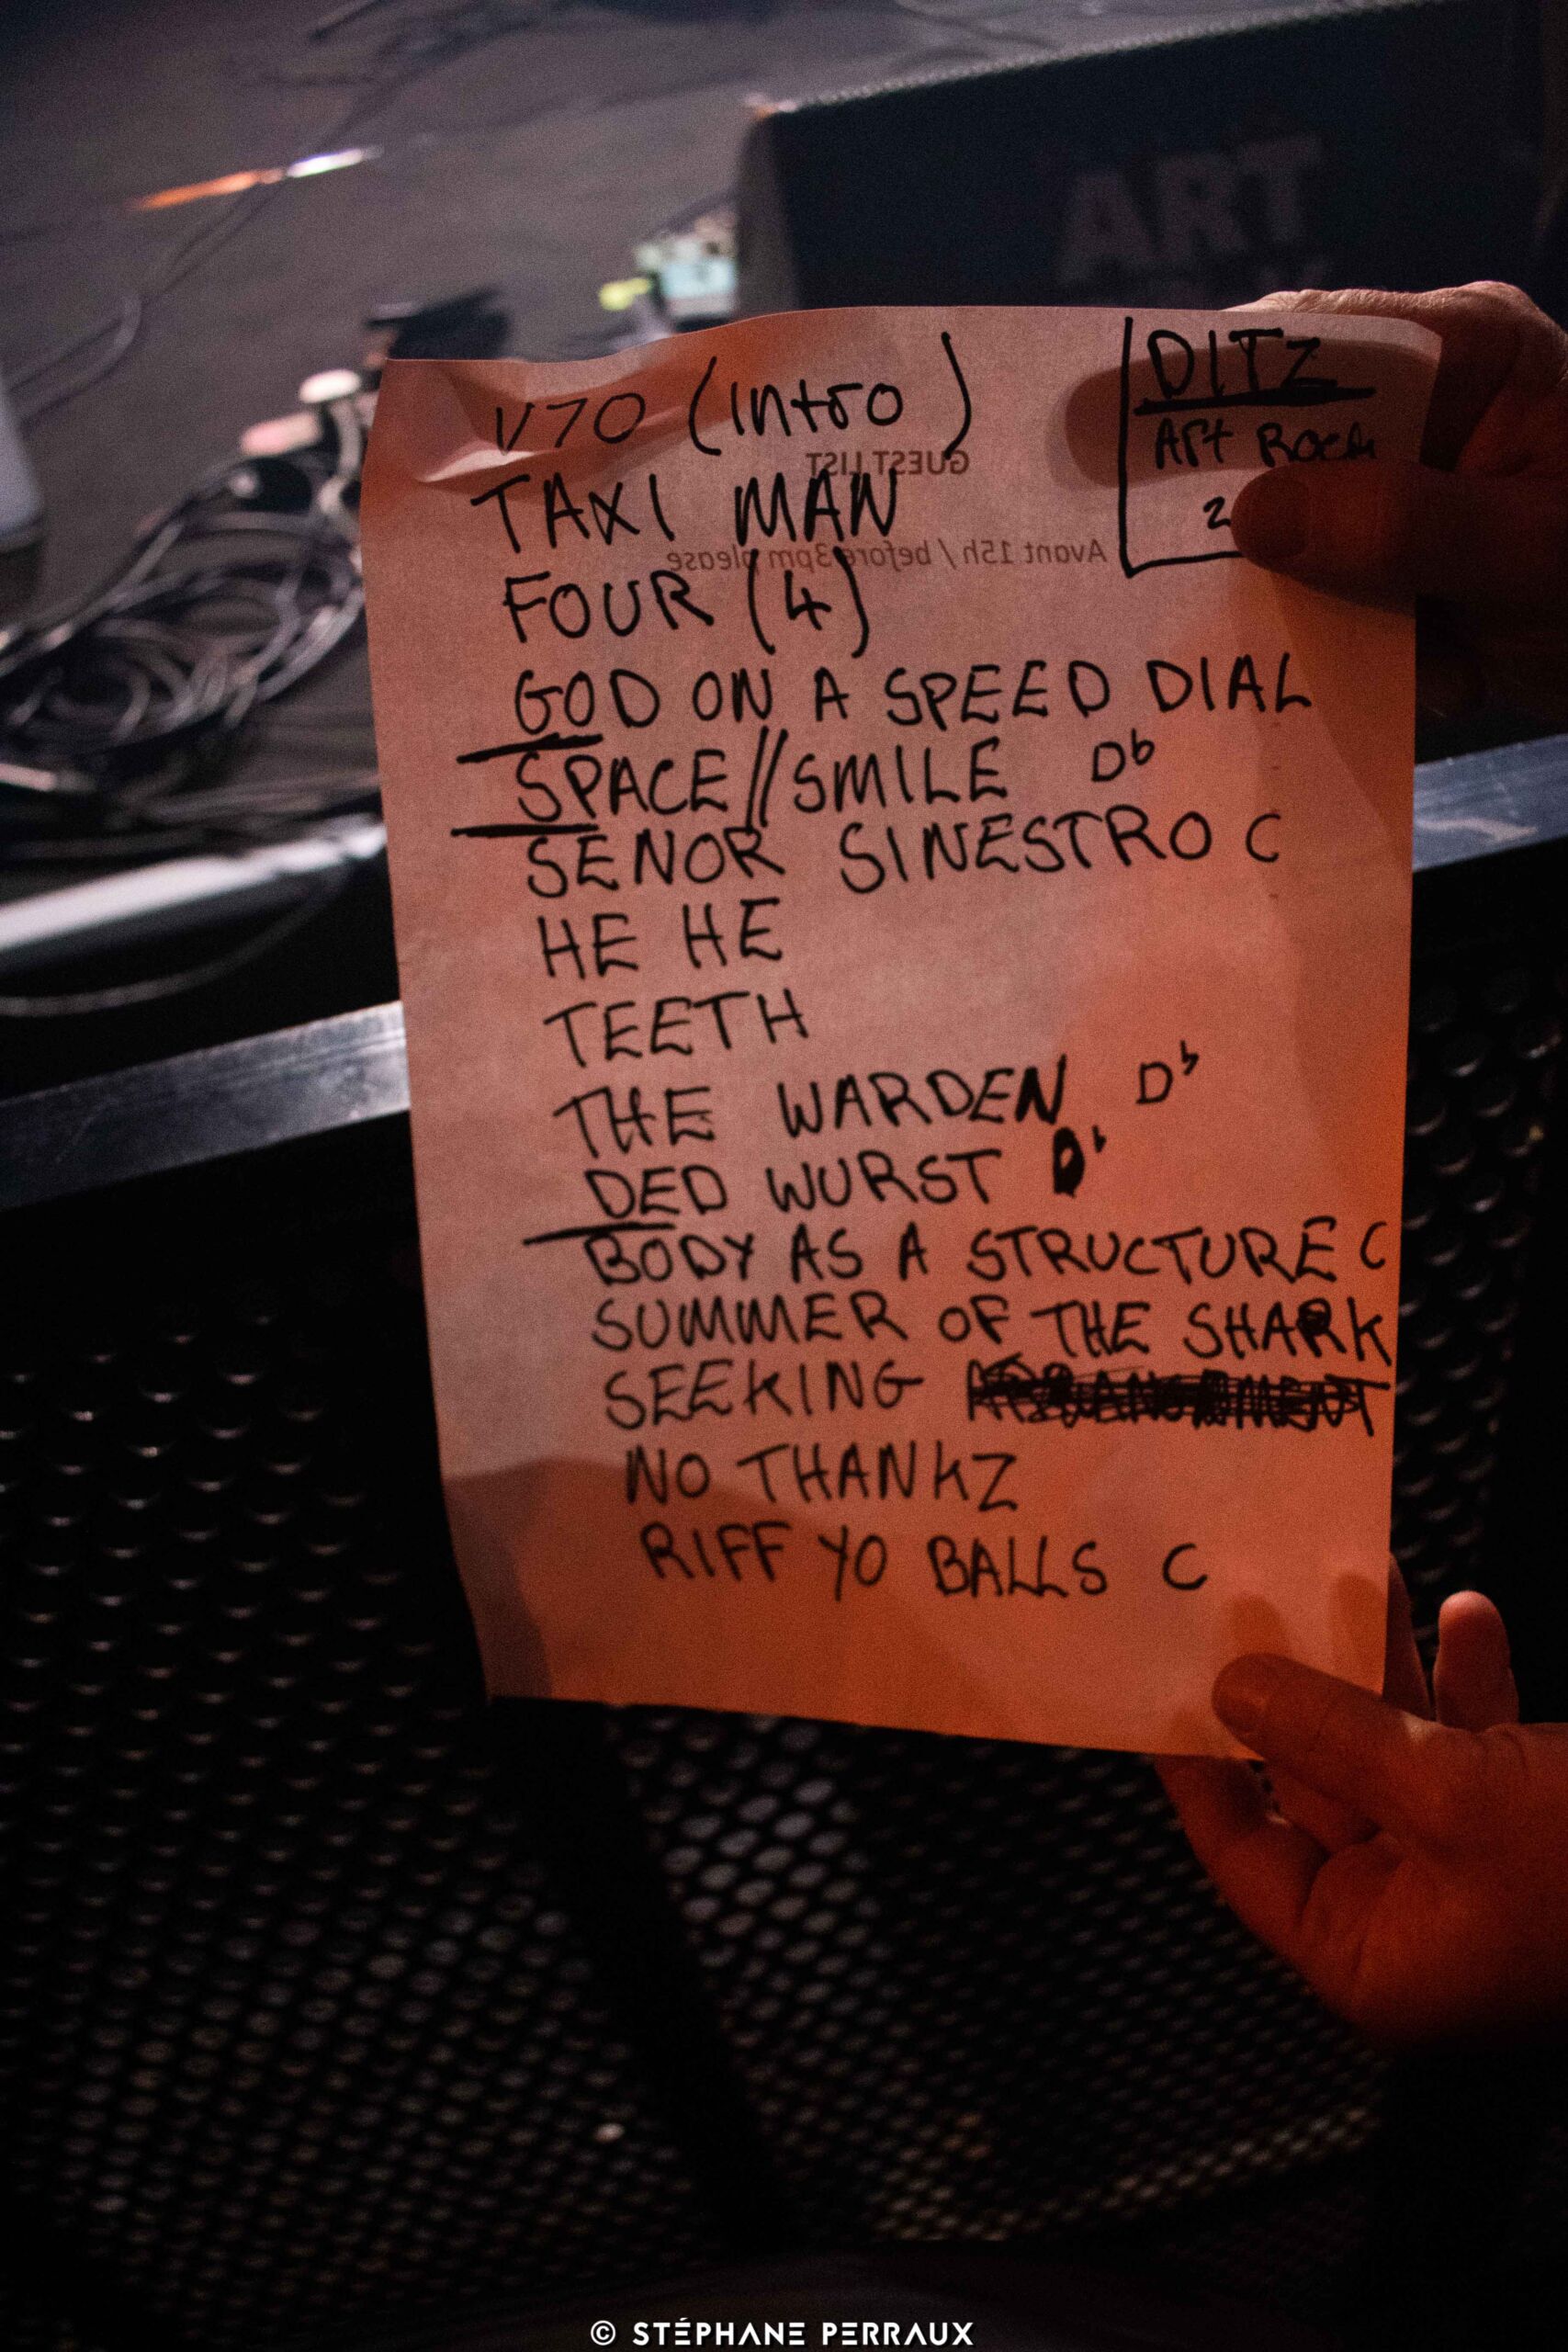 ART
V70 (Intro)
DITZ
Art Rock
2
GUEST LIST
TAXI MAN
Avant 15h / before 3pm please
FOUR (4)
GOD ON A SPEED DIAL
SPACE//SMILE Db
SENOR SINESTRO C
HE HE
TEETH
THE WARDEN Db
DED WURST Db
BODY AS A STRUCTURE C
SUMMER OF THE SHARK
SEEKING
NO THANKZ
RIFF YO BALLS C
© STÉPHANE PERRAUX